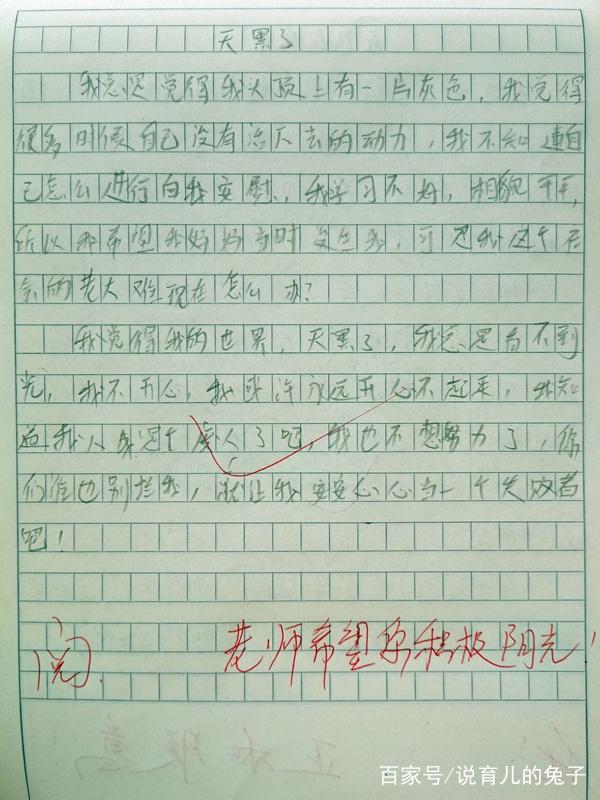 天黑了
我总是觉得我头顶上有一片灰色，我觉得
很多时候自己没有活下去的动力，我不知道自
己怎么进行自我安慰，我学习不好，相貌平平，
所以我希望我妈妈当时没生我，可是我这个
的老大难现在怎么办？
我觉得我的世界，天黑了，我总是看不到
光，我不开心，我或许永远开心不起来，我知
道我人生是个废人了吧，我也不想努力了，你
们谁也别拦我，就让我安安心心当一个失败者
吧！
阅.
老师希望你积极阳光！
百家号/说育儿的兔子